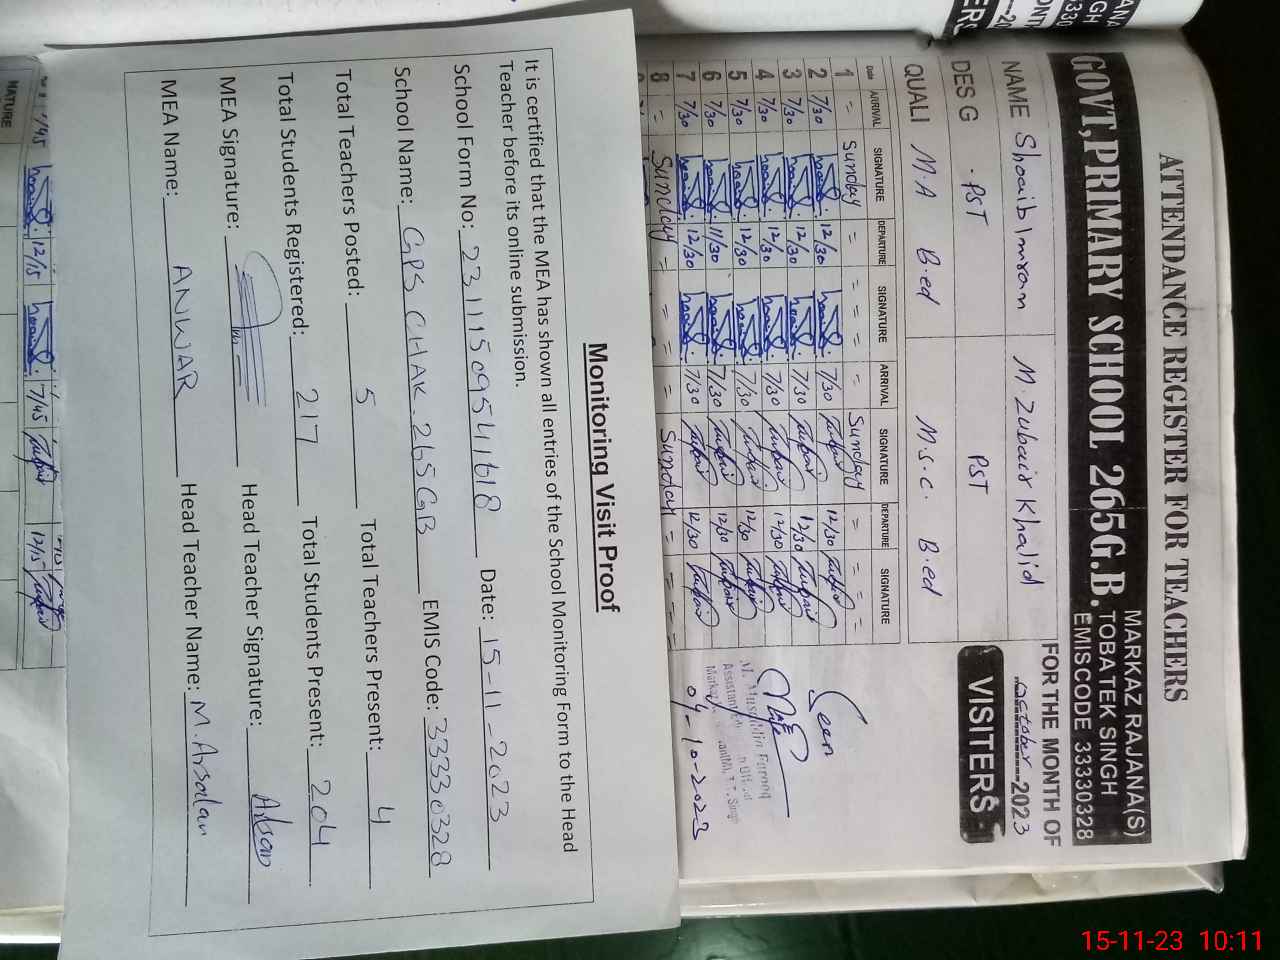 ATTENDANCE REGISTER FOR TEACHERS
GOVT, PRIMARY SCHOOL 265G.B.
MARKAZ RAJANA(S)
TOBA TEK SINGH
EMISCODE 33330328
FOR THE MONTH OF
October 2023
VISITERS
NAME Shoaib Imran M. Zubair Khalid
DES G . PST PST
QUALI M.A B.ed M.S.C. B.ed
Date ARRIVAL SIGNATURE DEPARTURE SIGNATURE ARRIVAL SIGNATURE DEPARTURE SIGNATURE
1 = Sunday = = = Sunday = =
2 7/30 12/30 7/30 12/30
3 7/30 12/30 7/30 12/30
4 7/30 12/30 7/30 12/30
5 7/30 12/30 7/30 12/30
6 7/30 11/30 7/30 12/30
7 7/30 12/30 7/30 12/30
8 = Sunday = = = Sunday = =
Seen
04-10-2023
Monitoring Visit Proof
It is certified that the MEA has shown all entries of the School Monitoring Form to the Head
Teacher before its online submission.
School Form No: 23111509541618 Date: 15-11-2023
School Name: GPS CHAK. 265GB EMIS Code: 33330328
Total Teachers Posted: 5 Total Teachers Present: 4
Total Students Registered: 217 Total Students Present: 204
MEA Signature: Head Teacher Signature:
MEA Name: ANWAR Head Teacher Name: M. Arsalan
12/15 7/45 12/15
NATURE
15-11-23 10:11